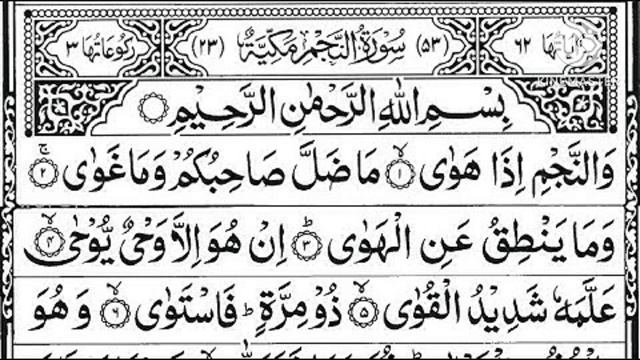 اٰيَاتُهَا ٦٢ (٥٣) سُوْرَةُ النَّجْمِ مَكِّيَّةٌ (٢٣) رُكُوْعَاتُهَا ٣
KINEMASTER
بِسْمِ اللّٰهِ الرَّحْمٰنِ الرَّحِيْمِ
وَالنَّجْمِ اِذَا هَوٰى ۙ‏﴿١﴾ مَا ضَلَّ صَاحِبُكُمْ وَمَا غَوٰى ۚ‏﴿٢﴾
وَمَا يَنْطِقُ عَنِ الْهَوٰى ؕ‏﴿٣﴾ اِنْ هُوَ اِلَّا وَحْىٌ يُّوْحٰى ۙ‏﴿٤﴾
عَلَّمَهٗ شَدِيْدُ الْقُوٰى ۙ‏﴿٥﴾ ذُوْ مِرَّةٍ ؕ فَاسْتَوٰى ۙ‏﴿٦﴾ وَهُوَ